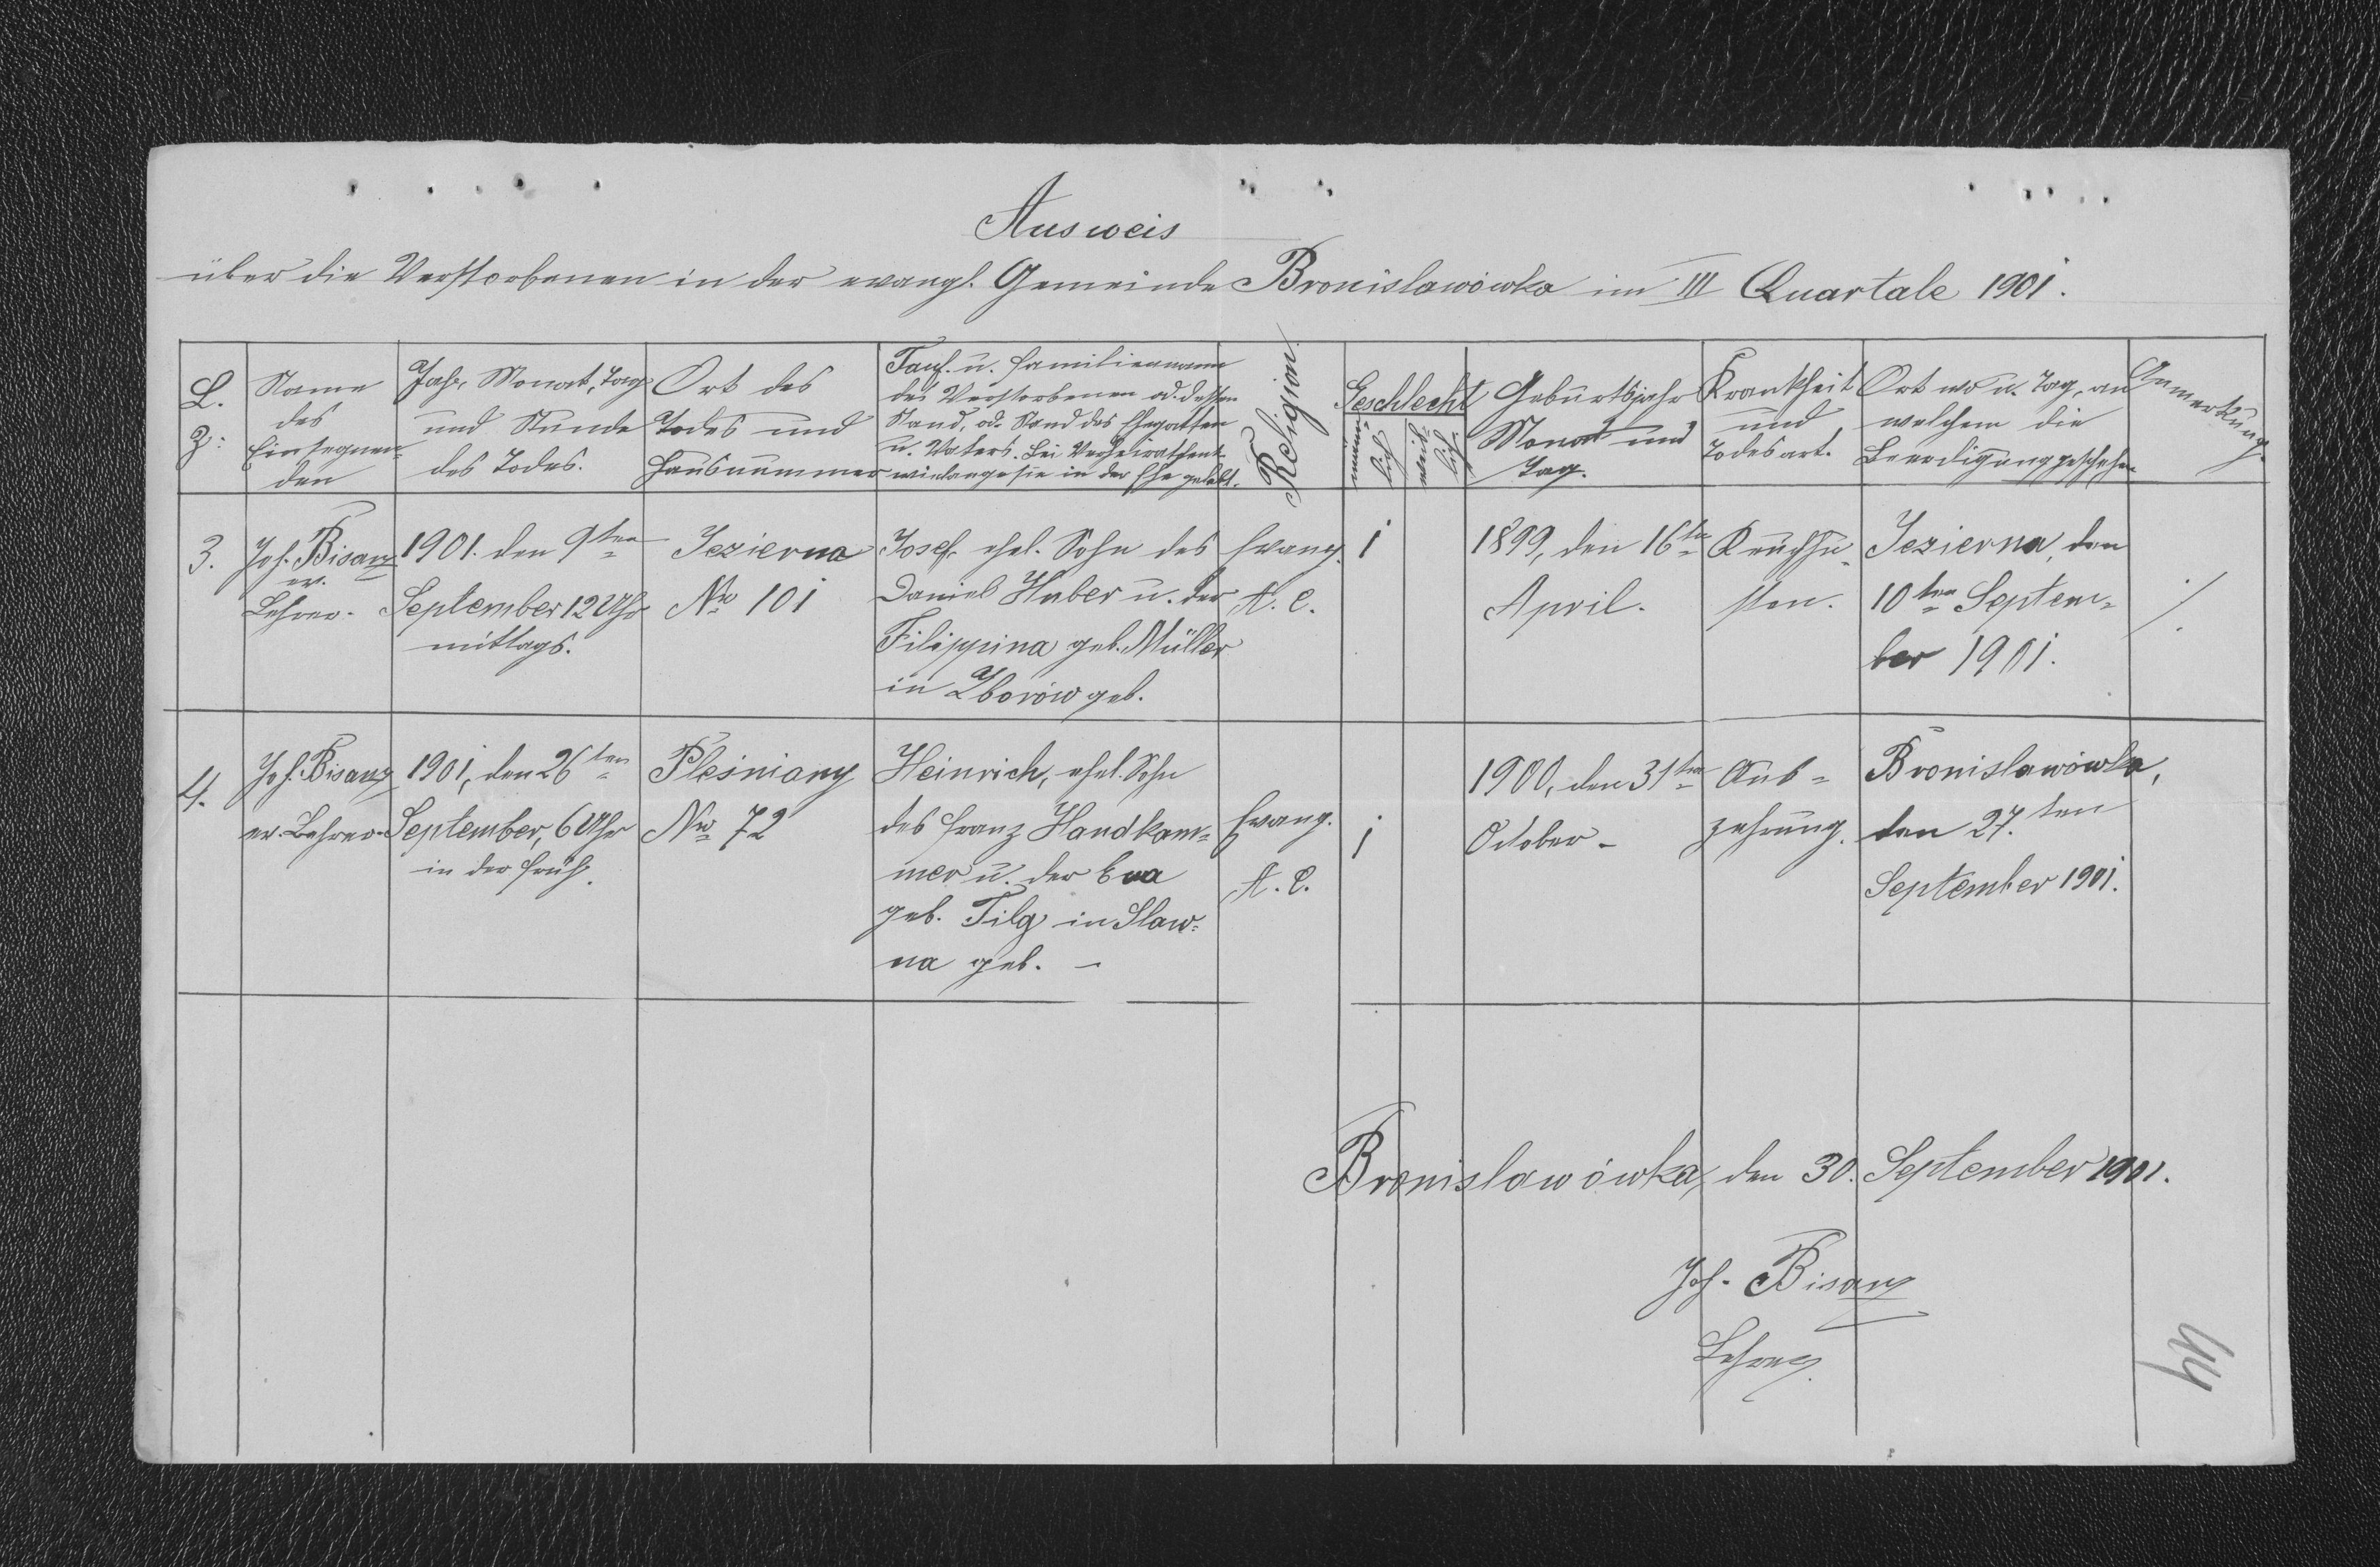 Ausweis
über die Verstorbenen in der evangl. Gemeinde Bronislawówka im III Quartale 1901.
L.
Z:
Name
des
Einsegnen-
den
Jahr, Monat, Tag
und Stunde
des Todes.
Ort des
Todes und
Hausnummer
Tauf- u. Familienname
des Verstorbenen od. dessen
Stand, od. Stand des Ehegatten
u. Vaters. Bei Verheirathent.
wie lange sie in der Ehe gelebt.
Religion
Geschlecht
männ-
lich
weib-
lich
Geburtsjahr
Monat und
Tag.
Krankheit
und
Todesart.
Ort wo u. Tag, an
welchem die
Beerdigung geschehen
Anmerkung.
3.
Joh. Bisanz
ev.
Lehrer.
1901. den 9ten
September 12 Uhr
mittags.
Jezierna
No 101
Josef, ehel. Sohn des
Daniel Huber u. der
Filippina geb. Müller
in Zborów geb.
Evang.
A. C.
1
1899, den 16ten
April.
Keuchhu-
sten.
Jezierna, den
10ten Septem-
ber 1901.
./.
4.
Joh. Bisanz
ev. Lehrer.
1901, den 26ten
September, 6 Uhr
in der Früh.
Plesniany
No 72
Heinrich, ehel. Sohn
des Franz Handkam-
mer u. der Eva
geb. Tilg in Slaw-
na geb. -
Evang.
A. C.
1
1900, den 31ten
October -
Aus-
zehrung.
Bronislawówka,
den 27.ten
September 1901.
Bronislawówka, den 30. September 1901.
Joh. Bisanz
Lehrer.